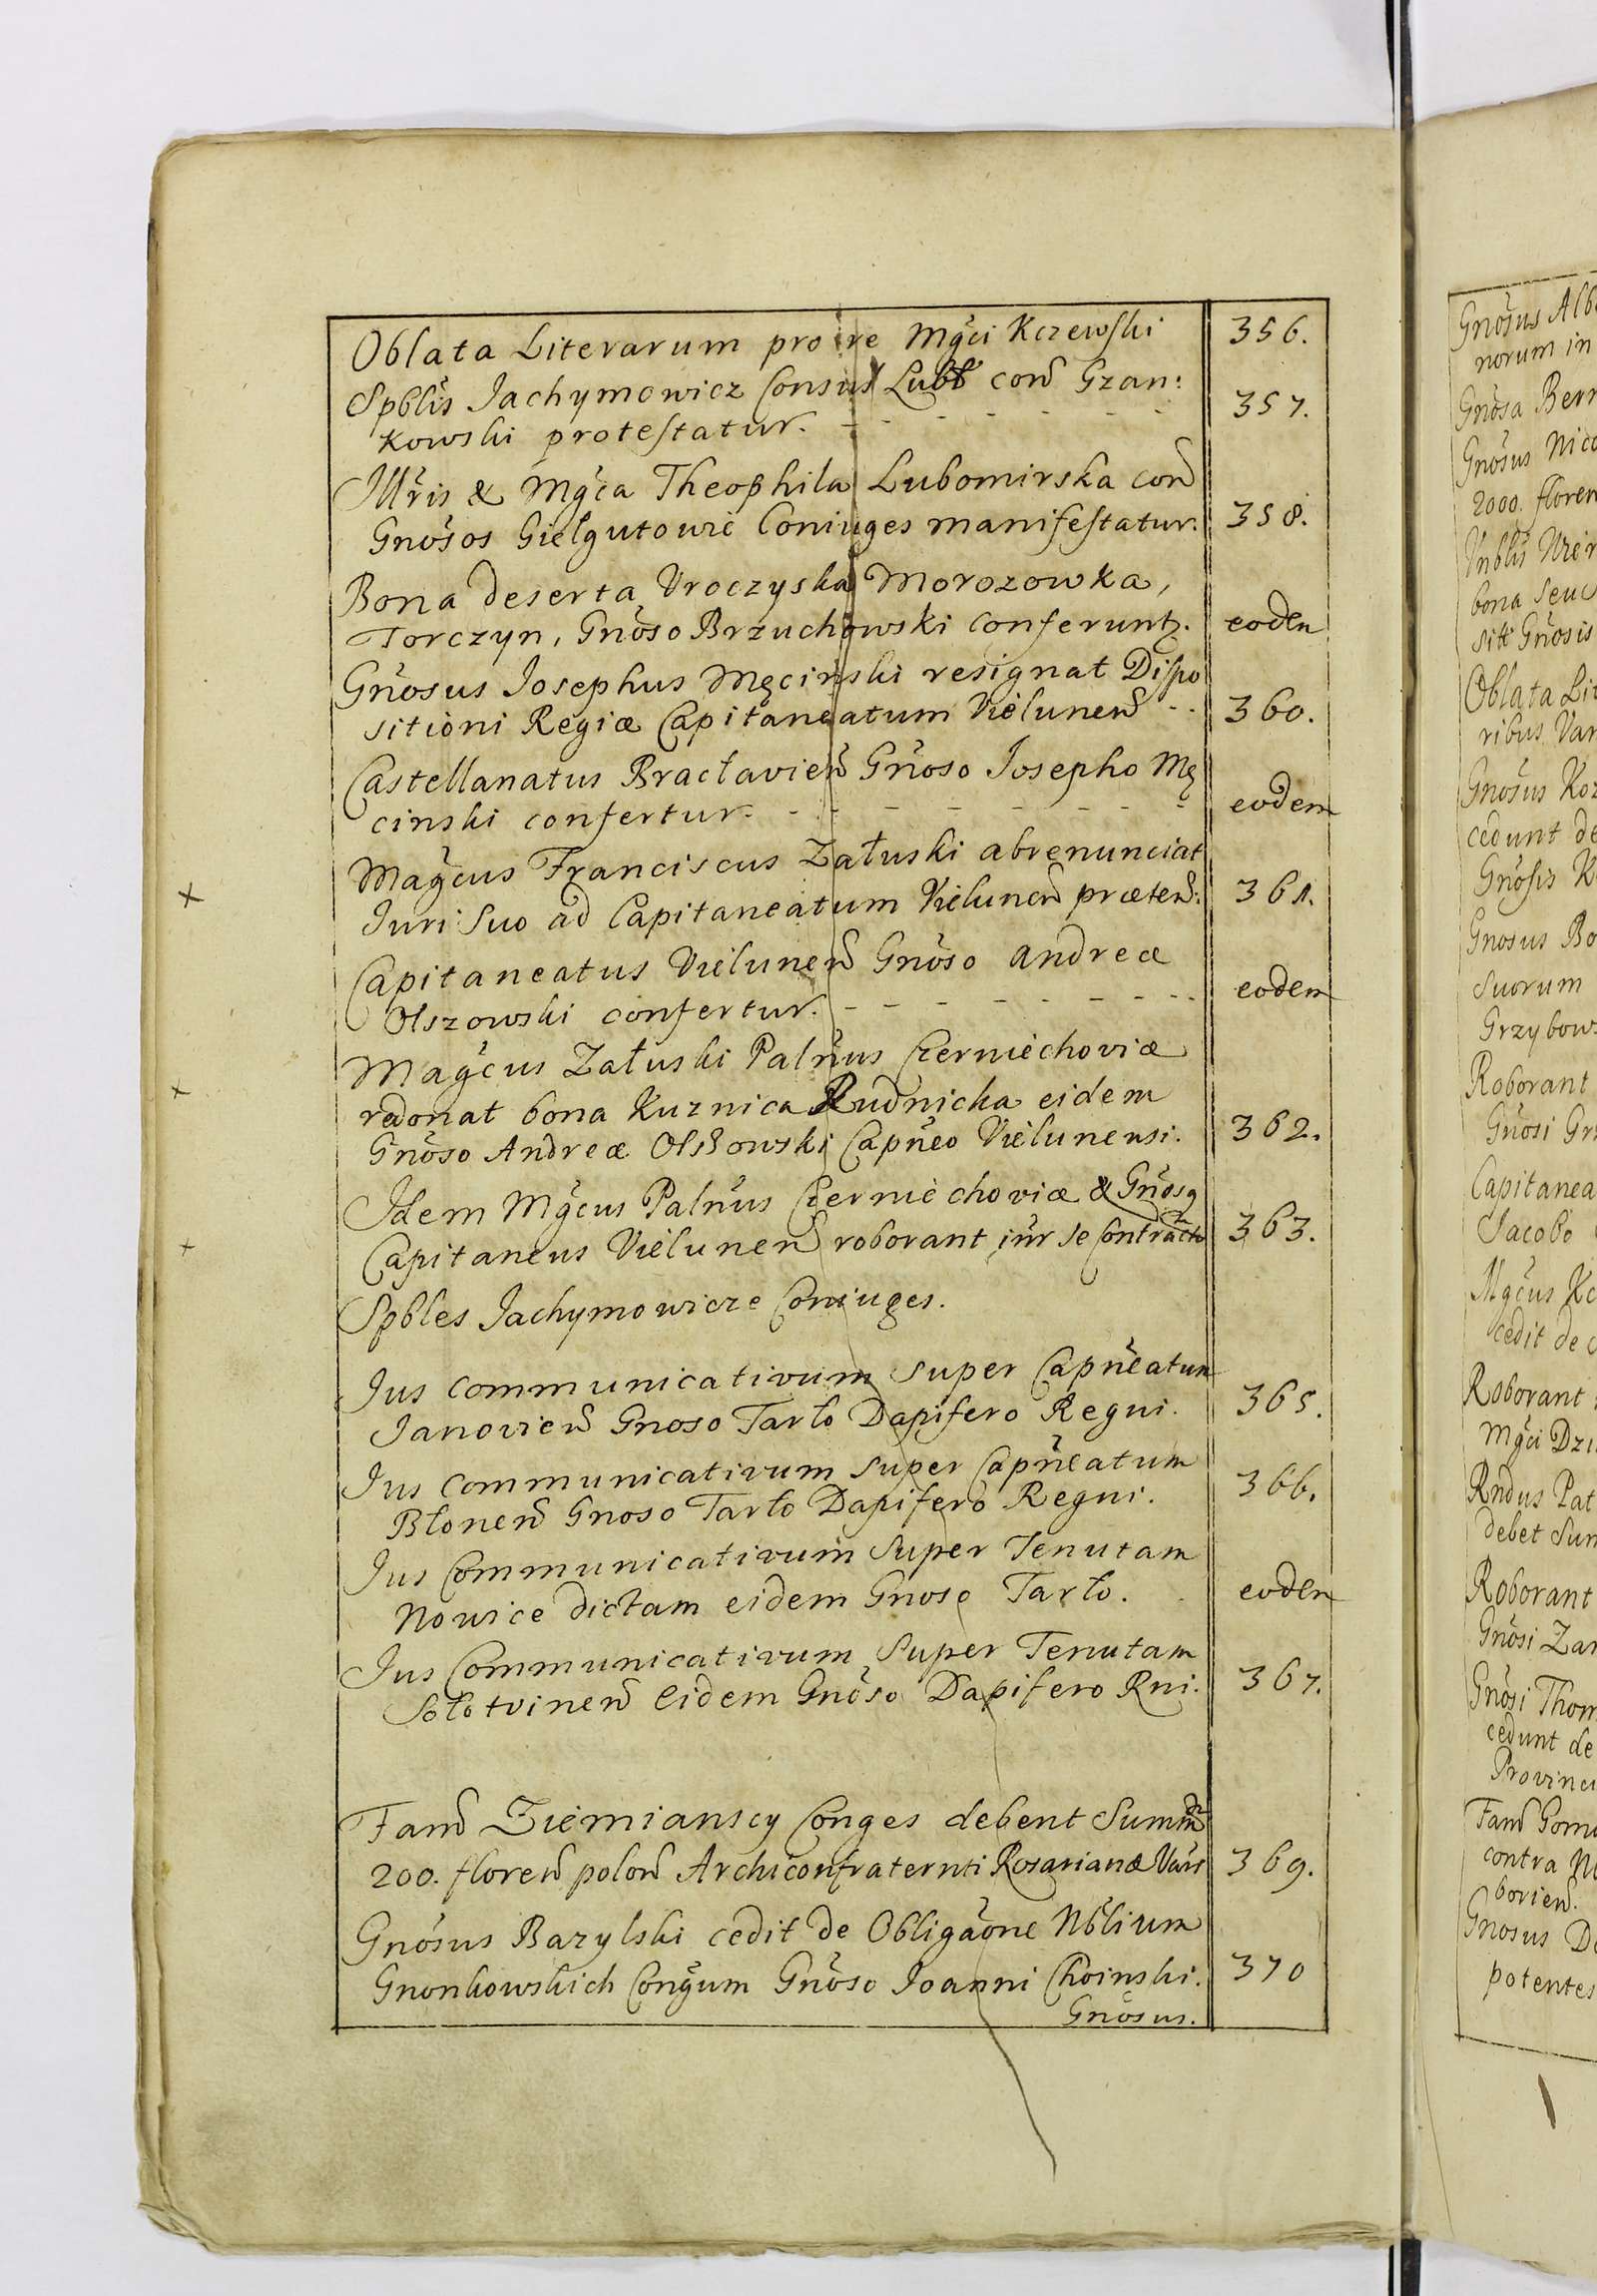 Oblata Literarum pro re Mgci Kczewski 356.
Spblis Jachymowicz Consul Lubl con Gran:
kowski protestatur. - - - - - - - 357.
Illris & Mgca Theophila Lubomirska con
Gnosos Gielgutowie Coniuges manifestatur. 358.
Bona deserta Vroczyska Morozowka,
Torczyn, Gnoso Brzuchowski conferunt. eodem
Gnosus Josephus Męcinski resignat Dispo
sitioni Regiæ Capitaneatum Vielunen - - 360.
Castellanatus Bracłavien Gnoso Josepho Mę
cinski confertur. - - - - - - - - eodem
Magcus Franciscus Załuski abrenunciat
Juri suo ad Capitaneatum Vielunen præten: 361.
Capitaneatus Vielunen Gnoso Andreæ
Olszowski confertur. - - - - - - - - eodem
Magcus Załuski Palnus Czerniechoviæ
redonat bona Kuznica Rudnicka eidem
Gnoso Andreæ Olszowski Capneo Vielunensi. 362.
Idem Mgcus Palnus Czerniechoviæ & Gnosq
Capitaneus Vielunen roborant intr se Contractu 363.
Spbles Jachymowicze Coniuges.
Jus communicativum super Capneatum
Janovien Gnoso Tarło Dapifero Regni. 365.
Jus communicativum super Capneatum
Błonen Gnoso Tarło Dapifero Regni. 366.
Jus Communicativum super Tenutam
Nowice dictam eidem Gnoso Tarło. eodem
Jus Communicativum super Tenutam
Sołotvinen eidem Gnoso Dapifero Rni. 367.
Fam Ziemianscy Conges debent Summ
200. floren polon Archiconfraternti Rosarianæ Vars 369.
Gnosus Barylski cedit de Obligaone Nblium
Gnonkowskich Congum Gnoso Joanni Choinski. 370
Gnosus.
Gnosus Alb
norum in
Gnosa Bern
Gnosus Nico
2000. floren
bona seu
sitt Gnosis
Oblata Lit
ribus Var
Gnosus Koz
cedunt de
Gnosis K
Gnosus Bo
suorum
Grzybows
Roborant
Gnosi Gr
Capitanea
Jacobo
Mgcus Kc
cedit de
Roborant
Mgci Dzi
Rndus Pat
debet Sum
Roborant
Gnosi Zar
Gnosi Thom
cedunt de
Provinci
Fam Gom
contra N
borien.
Gnosus D
potentes